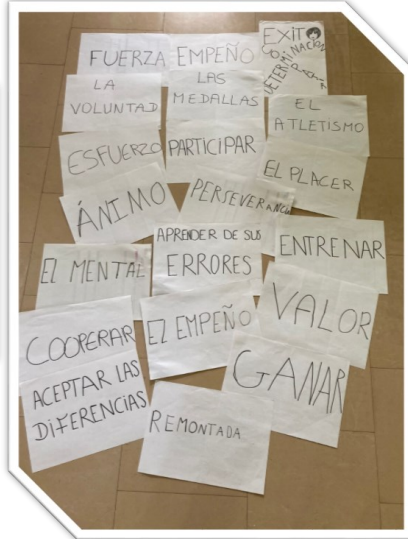 FUERZA
EMPEÑO
EXITO
DETERMINACIÓN
LA
VOLUNTAD
LAS
MEDALLAS
EL
ATLETISMO
ESFUERZO
PARTICIPAR
EL PLACER
ÁNIMO
PERSEVERANCIA
APRENDER DE SUS
ERRORES
ENTRENAR
El MENTAL
VALOR
COOPERAR
El EMPEÑO
GANAR
ACEPTAR LAS
DiFERENCIAS
REMONTADA